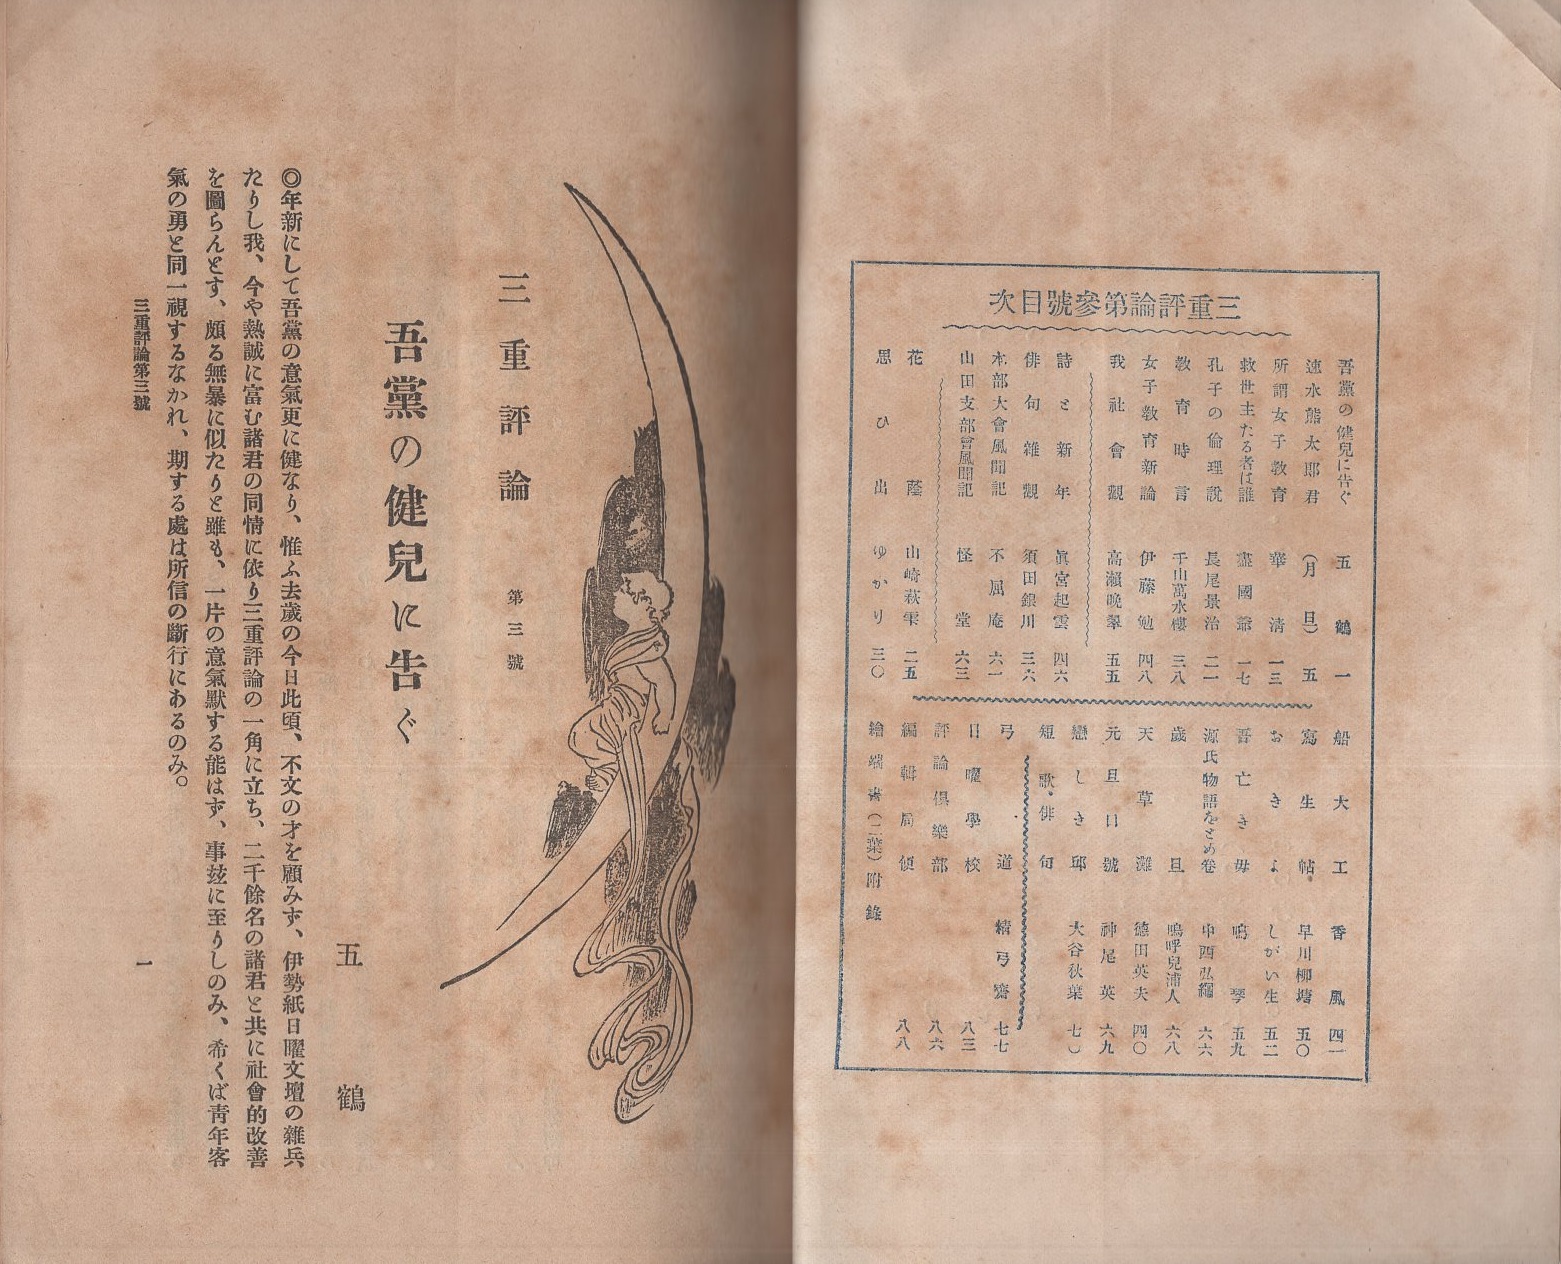 三重評論第參號目次
吾黨の健兒に告ぐ 五鶴 一
速水熊太郎君 (月旦) 五
所謂女子教育 華清 一三
救世主たる者は誰 憂國爺 一七
孔子の倫理說 長尾景治 二一
教育時言 千山萬水樓 三八
女子教育新論 伊藤勉 四八
我社會觀 高瀨晚翠 五五
詩と新年 眞宮起雲 四六
俳句雜觀 須田銀川 三六
本部大會風聞記 不屈庵 六一
山田支部會風聞記 怪堂 六三
花蔭 山崎萩雫 二五
思ひ出 ゆかり 三〇
船大工 香風 四一
寫生帖 早川柳塘 五〇
おきよ しがい生 五二
吾亡き母 鳴琴 五九
源氏物語をとめ卷 中西弘繩 六六
歲旦 嗚呼兒浦人 六八
天草灘 德田英夫 四〇
元旦口號 神尾英 六九
戀しき邱 大谷秋葉 七〇
短歌、俳句
弓道 精弓齋 七七
日曜學校 八三
評論俱樂部 八六
編輯局便 八八
繪端書(二葉)附錄
三重評論 第三號
吾黨の健兒に告ぐ
五鶴
◎年新にして吾黨の意氣更に健なり、惟ふ去歲の今日此頃、不文の才を顧みず、伊勢紙日曜文壇の雜兵
たりし我、今や熱誠に富む諸君の同情に依り三重評論の一角に立ち、二千餘名の諸君と共に社會的改善
を圖らんとす、頗る無暴に似たりと雖も、一片の意氣默する能はず、事玆に至りしのみ、希くば靑年客
氣の勇と同一視するなかれ、期する處は所信の斷行にあるのみ。
三重評論第三號
一